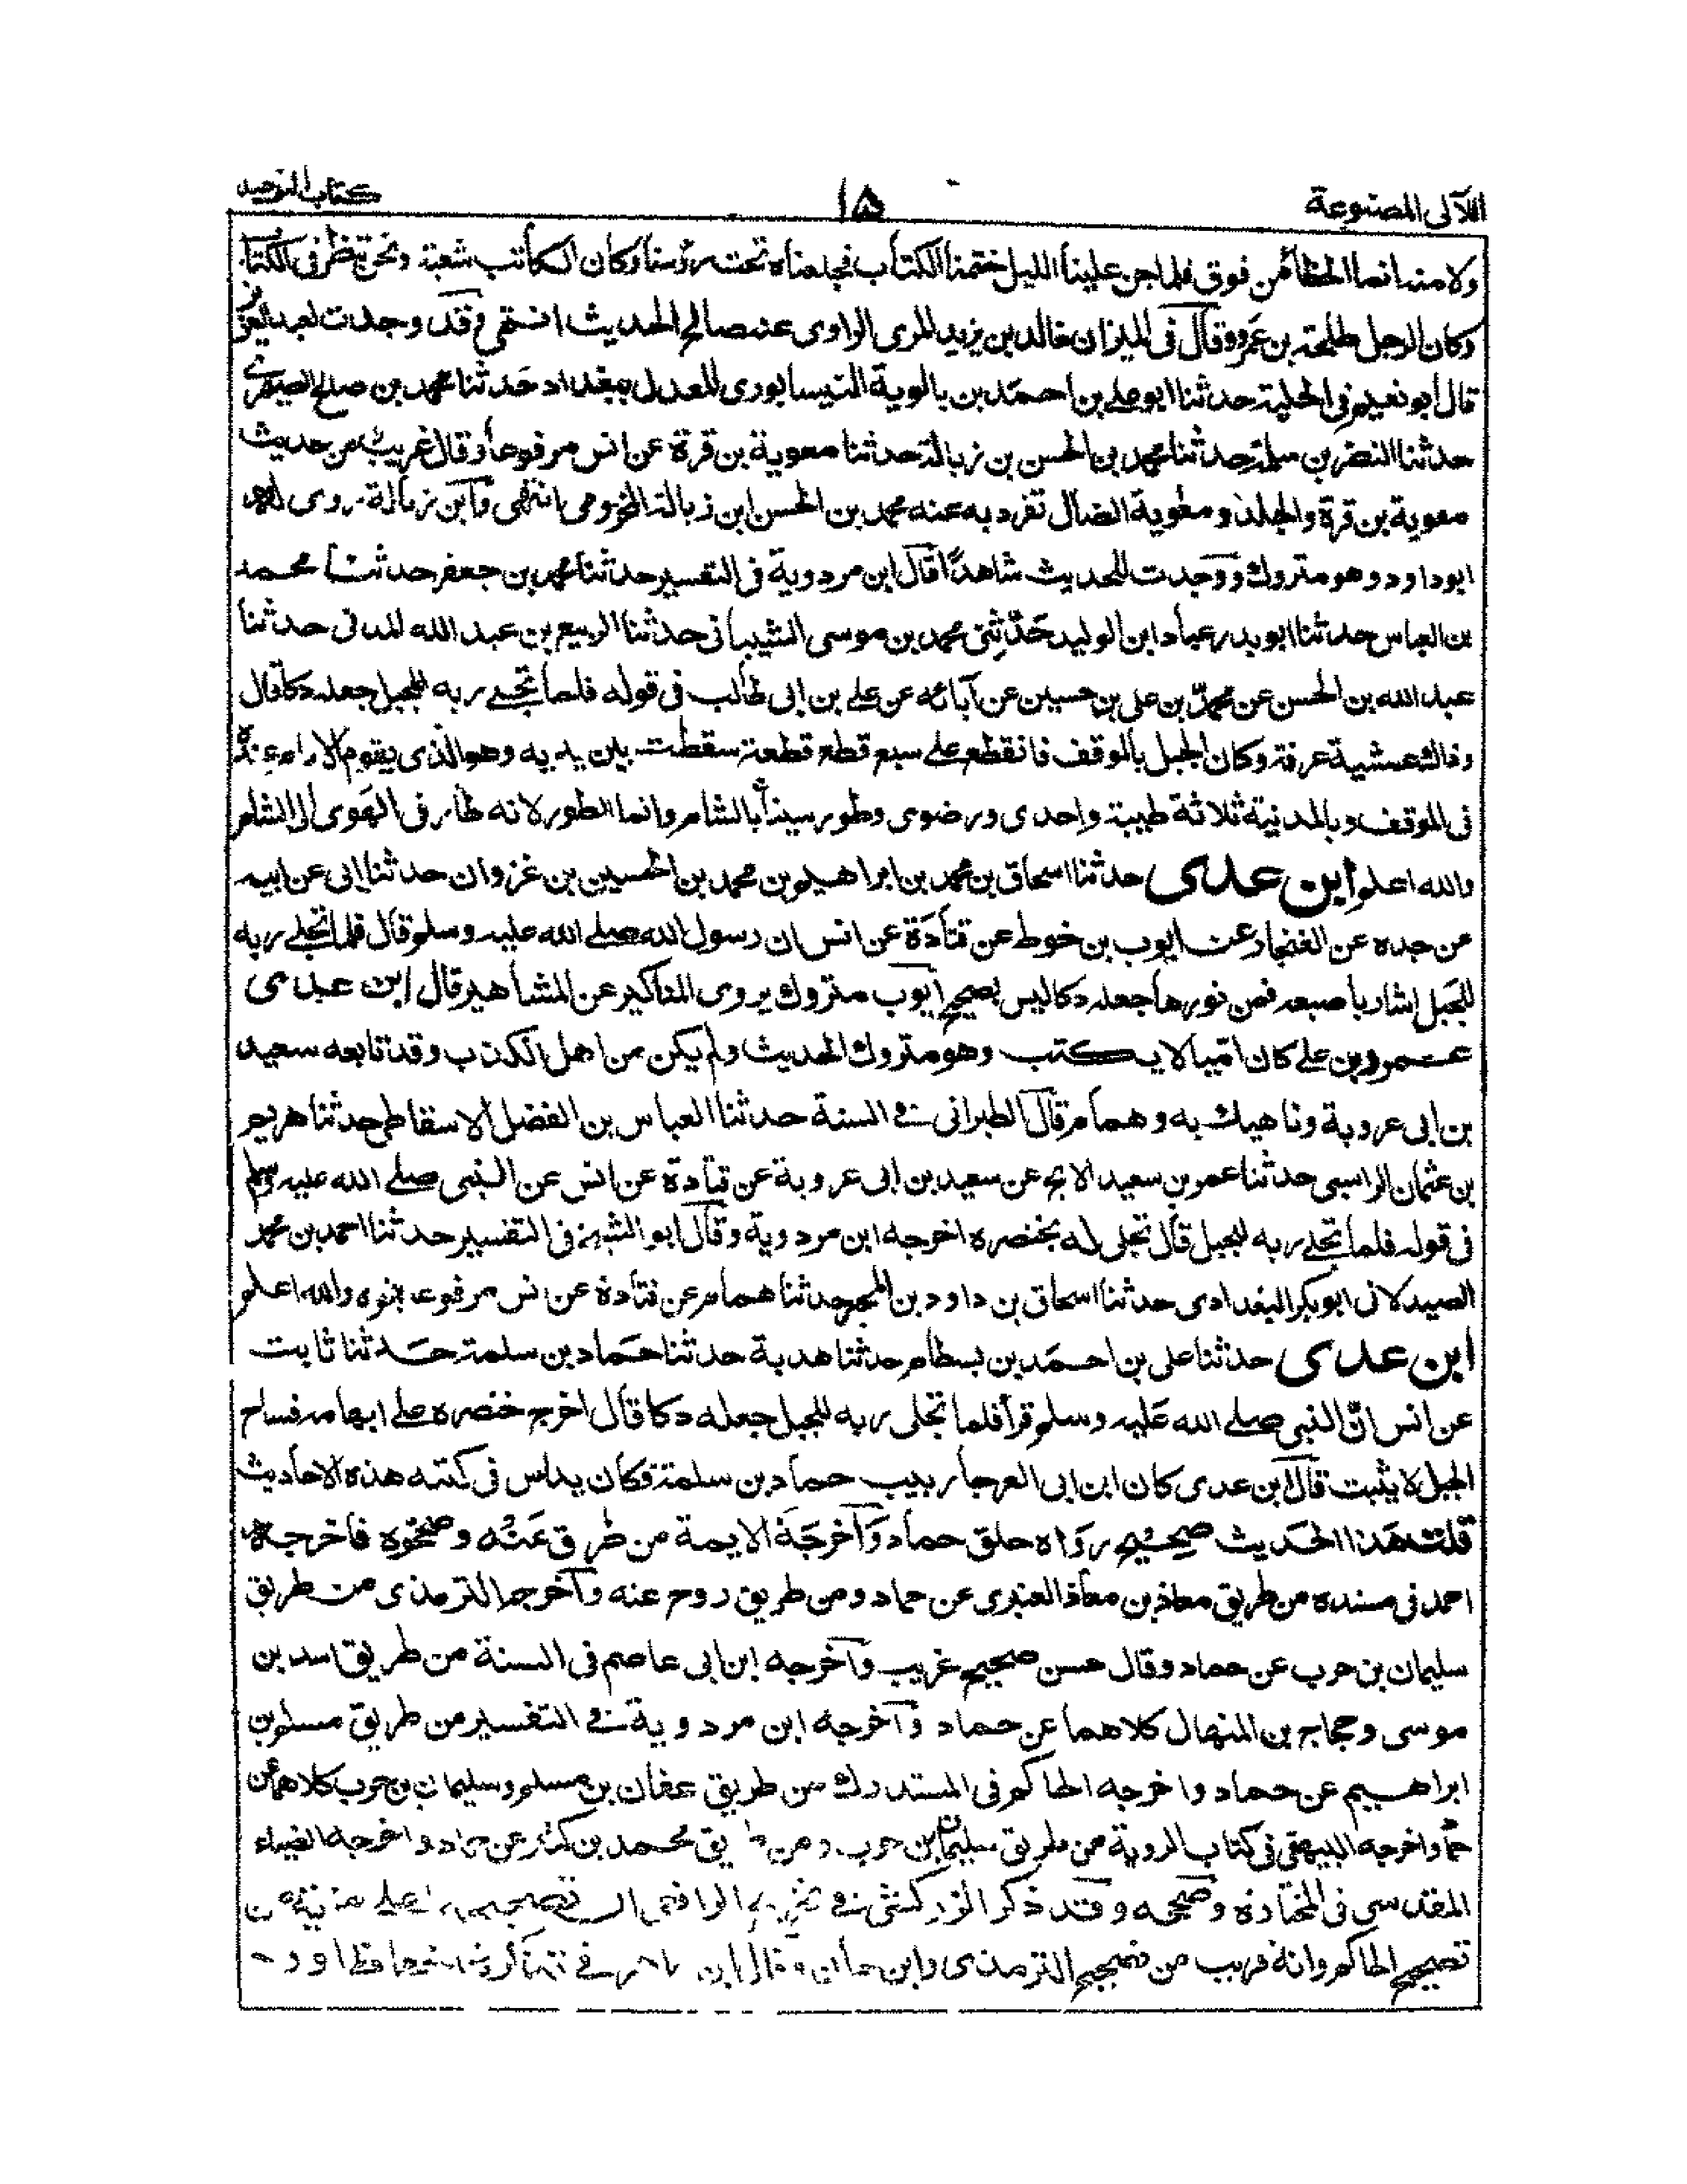 اللآلى المصنوعة
١٥
كتاب التوحيد
ولا منه انما الخطأ من فوق فلما جن علينا الليل ختمنا الكتاب فجعلناه تحت رؤسنا وكان الكاتب شعبة ونحن ننظر فى الكتاب
وكان الرجل طلحة بن عمرو وقال فى الميزان خالد بن يزيد المرى الراوى عنه صالح الحديث انتهى وقد وجدت لعبد العزيز
قال أبو نعيم فى الحلية حدثنا ابو على بن احمد بن بالوية النيسابورى المعدل ببغداد حدثنا محمد بن صالح الصيمرى
حدثنا النضر بن سلمة حدثنا محمد بن الحسن بن زبالة حدثنا معوية بن قرة عن انس مرفوعا وقال غريب من حديث
معوية بن قرة والجلد ومعوية الضال تفرد به عنه محمد بن الحسن ابن زبالة المخزومى انتهى وابن زبالة روى له
ابو داود وهو متروك ووجدت للحديث شاهدًا قال ابن مردوية فى التفسير حدثنا محمد بن جعفر حدثنا محمد
بن العباس حدثنا ابو بدر عباد ابن الوليد حَدّثنى محمد بن موسى الشيبانى حدثنا الربيع بن عبد الله المدنى حدثنا
عبد الله بن الحسن عن محمد بن على بن حسين عن آبائه عن على بن ابى طالب فى قوله فلما تجلى ربه للجبل جعله دكا قال
وذالك عشية عرفة وكان الجبل بالموقف فانقطع على سبع قطع قطعة سقطت بين يديه وهو الذى يقوم الامام عنده
فى الموقف وبالمدنية ثلاثة طيبة واحدى ورضوى وطور سيناء بالشام وانما الطور لانه طار فى الهوى الى الشام
والله اعلم ابن عدى حدثنا اسحاق بن محمد بن ابراهيم بن محمد بن الحسين بن غزوان حدثنا ابى عن ابيه
عن جده عن الغنجار عن ايوب بن خوط عن قتادة عن انس ان رسول الله صلى الله عليه وسلم قال فلما تجلى ربه
للجبل اشار باصبعه فمن نورها جعله دكا ليس بصحيح ايوب متروك يروى المناكير عن المشاهير قال ابن عدى
عمرو بن على كان اميا لا يكتب وهو متروك الحديث ولم يكن من اهل الكذب وقد تابعه سعيد
بن ابى عروبة وناهيك به وهمام قال الطبرانى فى السنة حدثنا العباس بن الفضل الاسقاطى حدثنا هريم
بن عثمان الراسبى حدثنا عمر بن سعيد الابح عن سعيد بن ابى عروبة عن قتادة عن انس عن النبى صلى الله عليه وسلم
فى قوله فلما تجلى ربه للجبل قال تجلى له بخنصره اخرجه ابن مردوية وقال ابو الشيخ فى التفسير حدثنا احمد بن محمد
الصيدلانى ابو بكر البغدادى حدثنا اسحاق بن داود بن المحبر حدثنا همام عن قتادة عن انس مرفوعا بنحوه والله اعلم
ابن عدى حدثنا على بن احمد بن بسطام حدثنا هدبة حدثنا حماد بن سلمة حدثنا ثابت
عن انس انّ النبى صلى الله عليه وسلم قرأ فلما تجلى ربه للجبل جعله دكا قال اخرج خنصره على ابهامه فساح
الجبل لا يثبت قال ابن عدى كان ابن ابى العرجا ربيب حماد بن سلمة فكان يداس فى كتبه هذه الاحاديث
قلت هذا الحديث صحيح رواه حلق حماد وآخرجه الايمة من طرق عنه وصححوه فاخرجه
احمد فى مسنده من طريق معاذ بن معاذ العنبرى عن حماد ومن طريق روح عنه واخرجه الترمذى من طريق
سليمان بن حرب عن حماد وقال حسن صحيح غريب واخرجه ابن ابى عاصم فى السنة من طريق اسد بن
موسى وحجاج بن المنهال كلاهما عن حماد واخرجه ابن مردوية فى التفسير من طريق مسلم بن
ابراهيم عن حماد واخرجه الحاكم فى المستدرك من طريق عفان بن مسلم وسليمان بن حرب كلاهما عن
حماد واخرجه البيهقى فى كتاب الروية من طريق سليمان بن حرب ومن طريق محمد بن كثير عن حماد واخرجه الضياء
المقدسى فى المختاره وصححه وقد ذكر الزركشى فى تخريج الرافعى ان تصحيحه اعلى مزية من
تصحيح الحاكم وانه قريب من تصحيح الترمذى وابن حبان وقال ابن فى